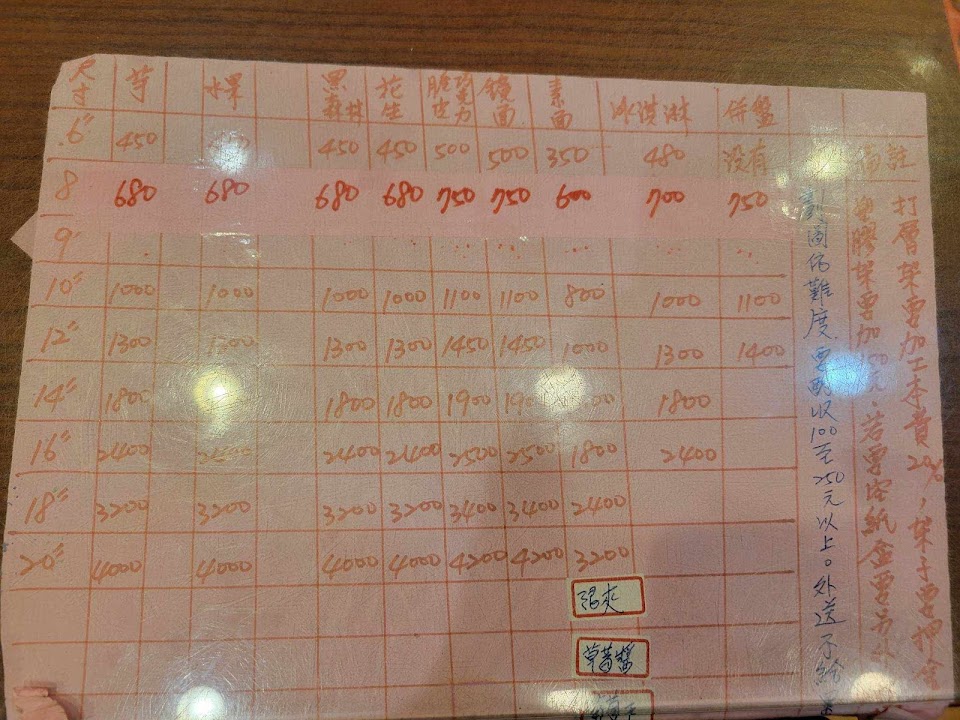 尺寸 芋 水果 黑森林 花生 脆皮 巧克力 鏡面 素面 冰淇淋 併盤 備註
6" 450 450 450 500 500 350 480 没有
8 680 680 680 680 750 750 600 700 750
9"
10" 1000 1000 1000 1000 1100 1100 800 1000 1100
12" 1300 1300 1300 1300 1450 1450 1000 1300 1400
14" 1800 1800 1800 1900 1800
16" 2400 2400 2400 2400 2500 2500 1800 2400
18" 3200 3200 3200 3200 3400 3400 2400
20" 4000 4000 4000 4000 4200 4200 3200
打層架要加工本費20%,架子要押金
膠架要加 若要 紙盒要
圖的難度要 收100至250元以上。外送
草莓醬